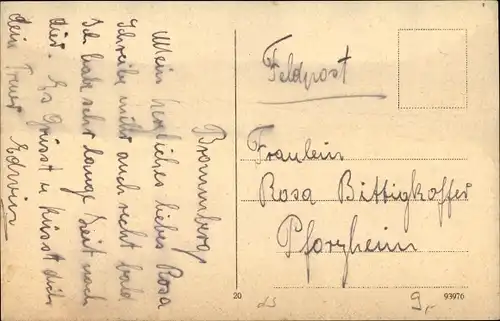 Braunsberg
Mein herzliches liebes Rosa
Schreibe mir auch recht bald
Ich habe sehr lange Zeit nach
dir. Es Grüsst u küsst dich
dein Treuer Edwin
Feldpost
Fraulein
Rosa Bittigkoffer
Pforzheim
20
93976
9,-